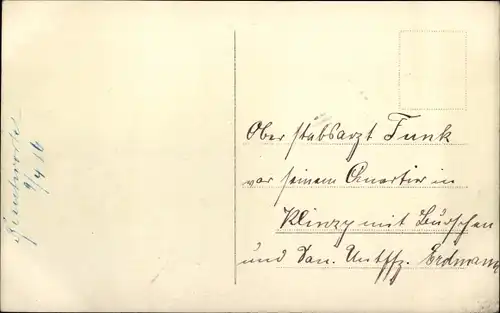 Oberstabsarzt Funk
vor seinem Quartier in
Klinzy mit Burschen
und San. Untffz. Erdmann
9/4 16